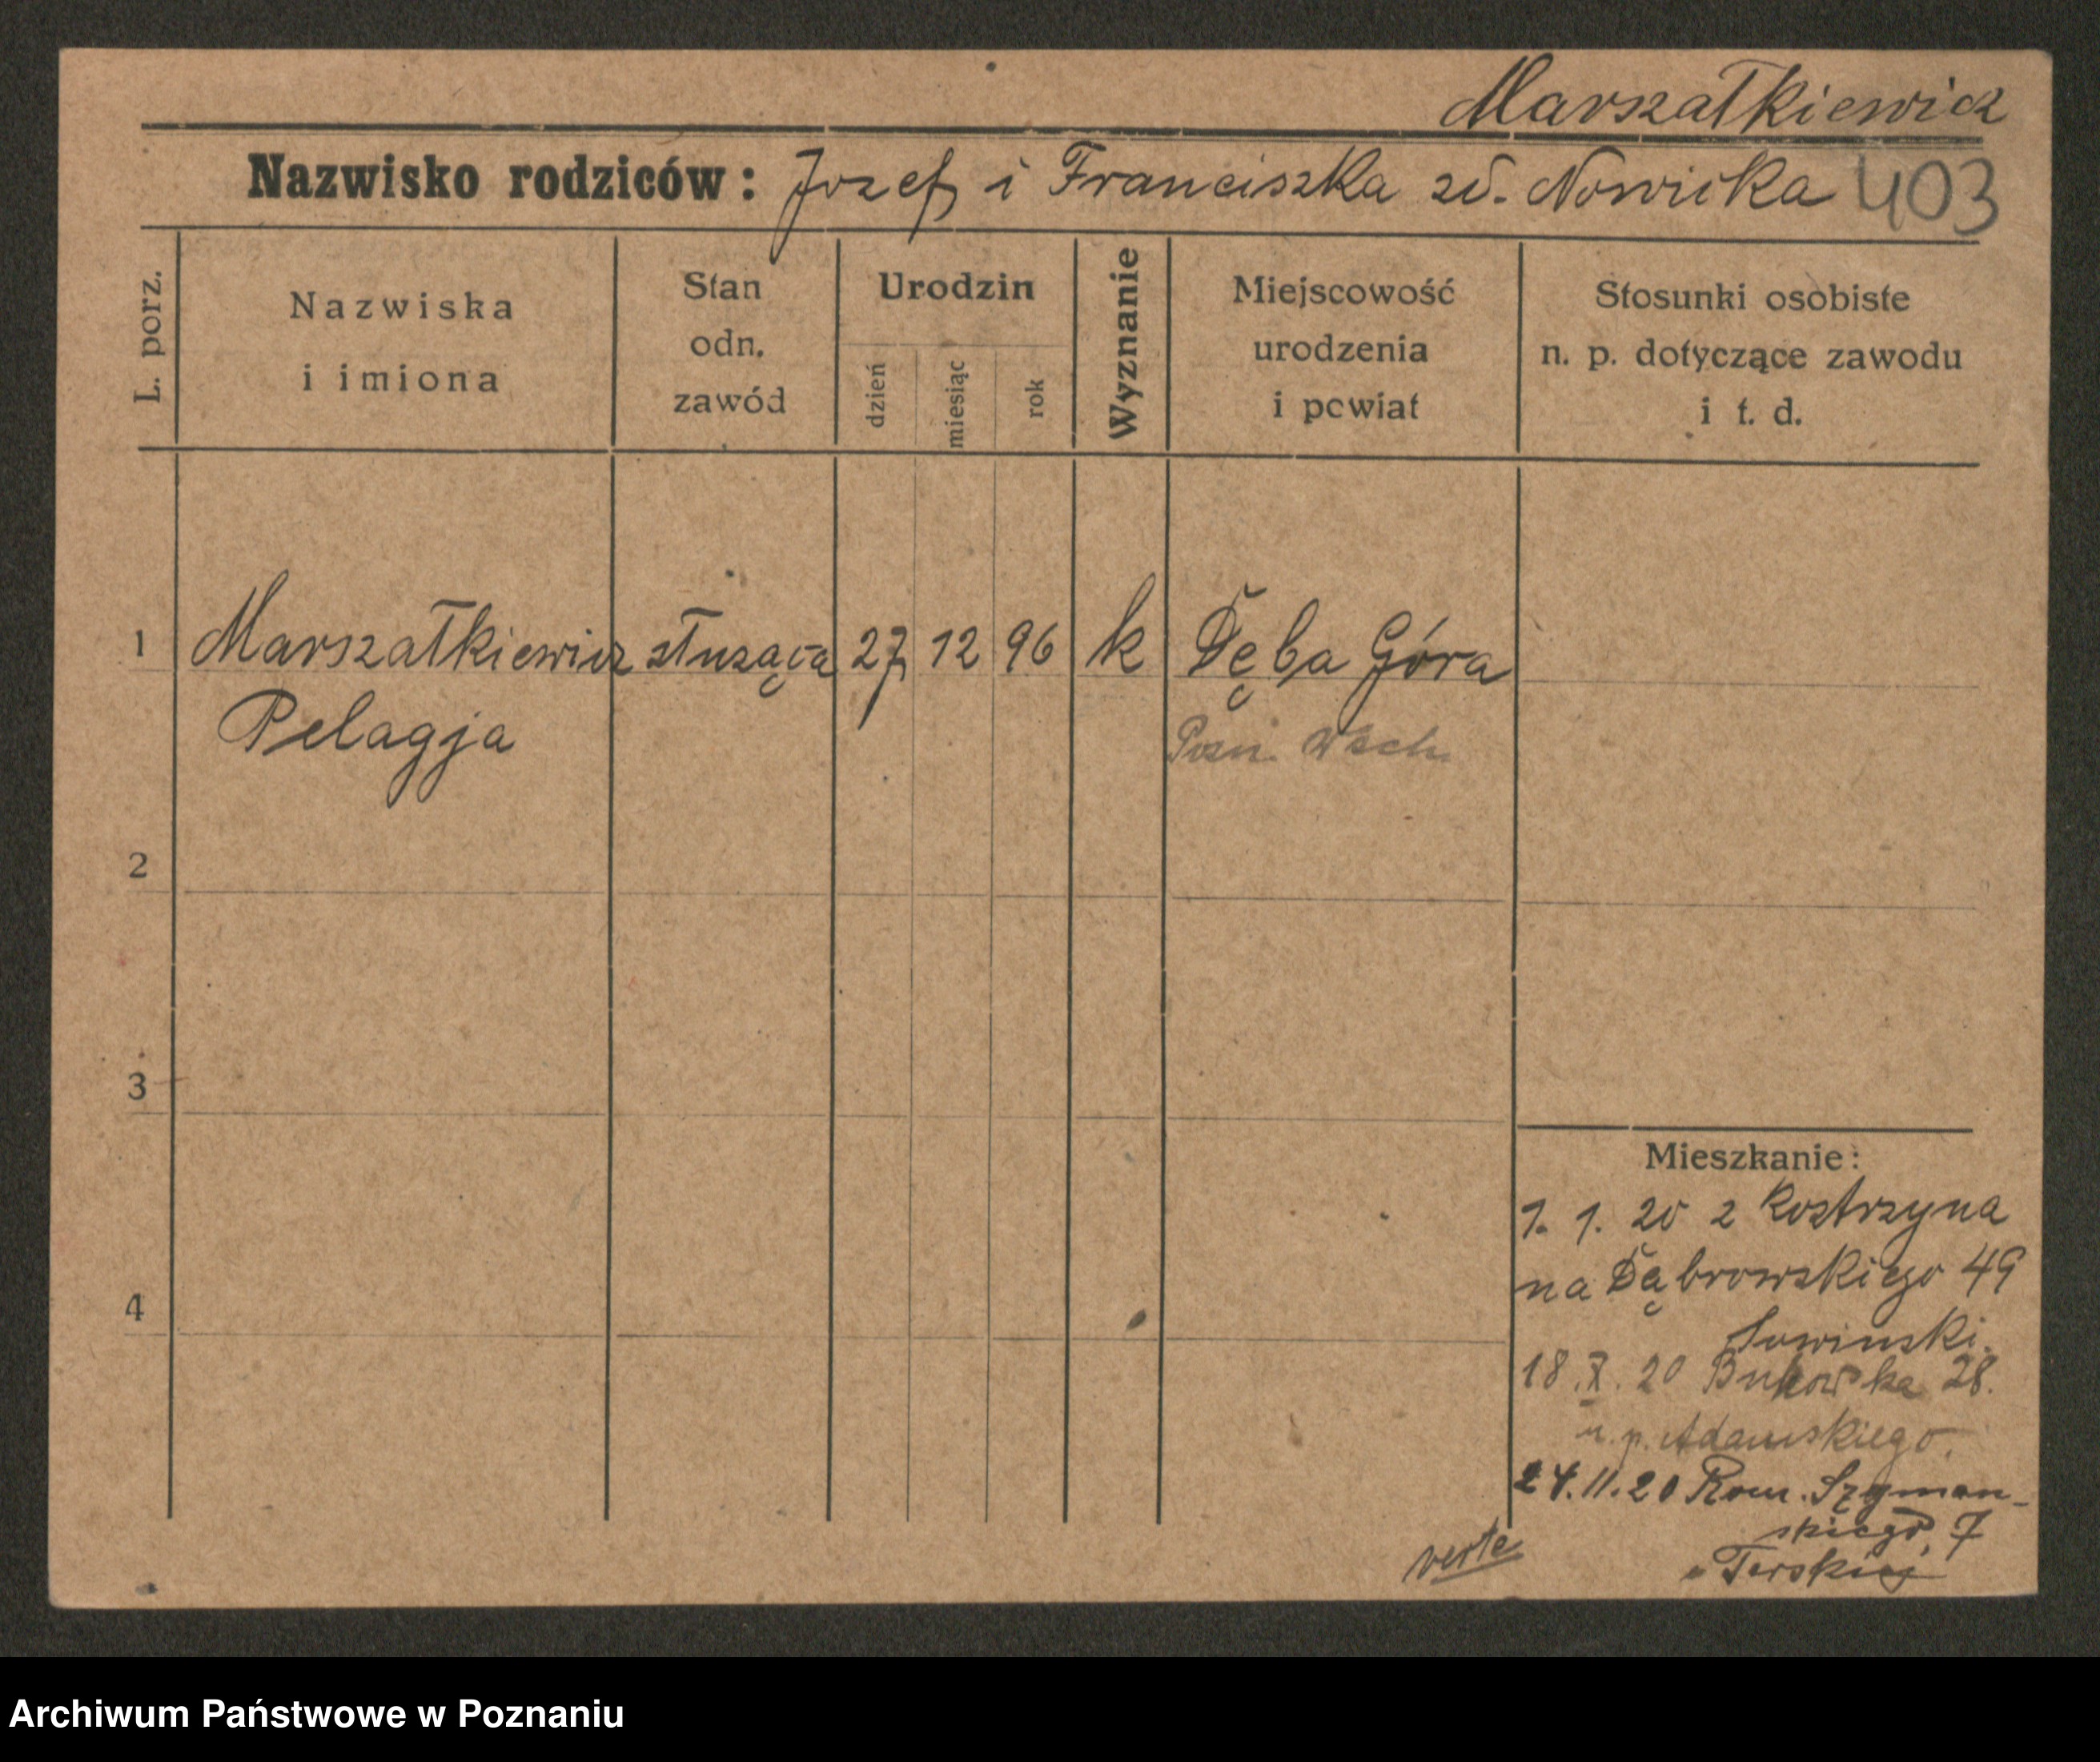 Marszałkiewicz
Nazwisko rodziców: Jozef i Franciszka zd. Nowicka 403
L. porz.
Nazwiska
i imiona
Stan
odn.
zawód
Urodzin
dzień
miesiąc
rok
Wyznanie
Miejscowość
urodzenia
i powiat
Stosunki osobiste
n. p. dotyczące zawodu
i t. d.
1 Marszałkiewicz służąca 27 12 96 k Dęba Góra
Pelagja Pozn. Wsch.
2
3
4
Mieszkanie:
1. 1. 20 z Kostrzyna
na Dąbrowskiego 49
Sowinski.
18. X. 20 Bukowska 28.
u. p. Adamskiego.
24.11.20 Rom. Szyman-
skiego 7
u Terskiej
verte
Archiwum Państwowe w Poznaniu